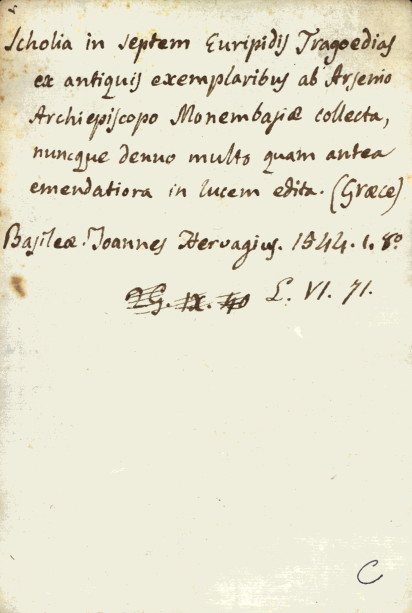 Scholia in septem Euripidis Tragoedias
ex antiquis exemplaribus ab Arsenio
Archiepiscopo Monembasiæ collecta,
nuncque denuo multo quam antea
emendatiora in lucem edita. (Græce)
Basileæ. Joannes Hervagius. 1544. 1. 8.º
IX. 40 L. VI. 71.
C